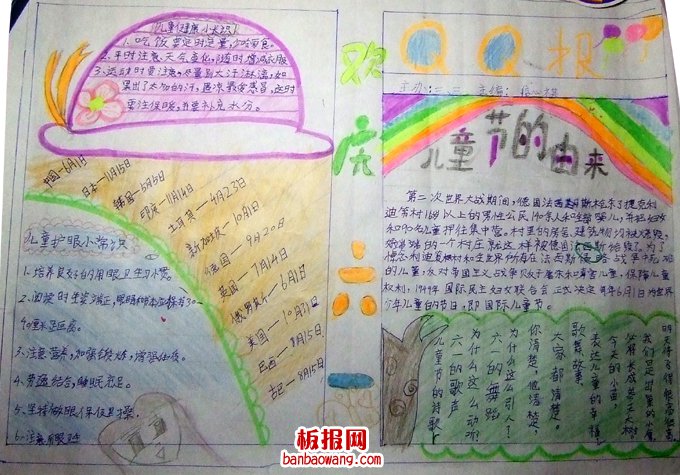 儿童健康小知识
1、吃饭要定时定量,少吃零食。
2、平时注意天气变化,随时增减衣服
3、运动时要注意,尽量别大汗淋漓,如
果出了太多的汗,
要注保暖,并要补充水分。
中国—6月1日
日本—11月15日
韩国—5月5日
印度—11月14日
土耳其—4月23日
新加坡—10月1日
德国—9月20日
英国—7月14日
俄罗斯—6月1日
美国—10月31日
巴西—8月15日
儿童护眼小常识
1、培养良好的用眼卫生习惯。
2、阅读时坐姿端正,眼睛和本应保持30-
40厘米是距离。
3、注意营养,加强锻炼,增强体质。
4、劳逸结合,睡眠充足。
5、坚持做眼保健操。
欢
庆
六
一
QQ报
主办:三、三 主编:
儿童节的由来
第二次世界大战期间,德国法西斯枪杀了捷克利
迪策村16岁以上的男性公民140余人和全部婴儿,并把妇女
和90名儿童押往集中营。村里的房舍、建筑物均被烧毁,
好端端的一个村庄就这样被德国法西斯给毁了。为了
悼念利迪策村和全世界所有在法西斯侵略战争中死难
的儿童,反对帝国主义战争贩子屠杀和毒害儿童,保障儿童
权利,1949年国际民主妇女联合会正式决定每年6月1日为世界
少年儿童的节日,即国际儿童节。
儿童节的诗歌
六一的歌声
为什么这么动听?
六一的舞蹈
为什么这么引人?
你清楚,他清楚,
大家都清楚。
歌舞故事,
表达儿童的幸福
今天的小苗,
必将长成参天大树。
我们是出巢的小鹰,
明天将飞得很高很高
板报网
banbaowang.com